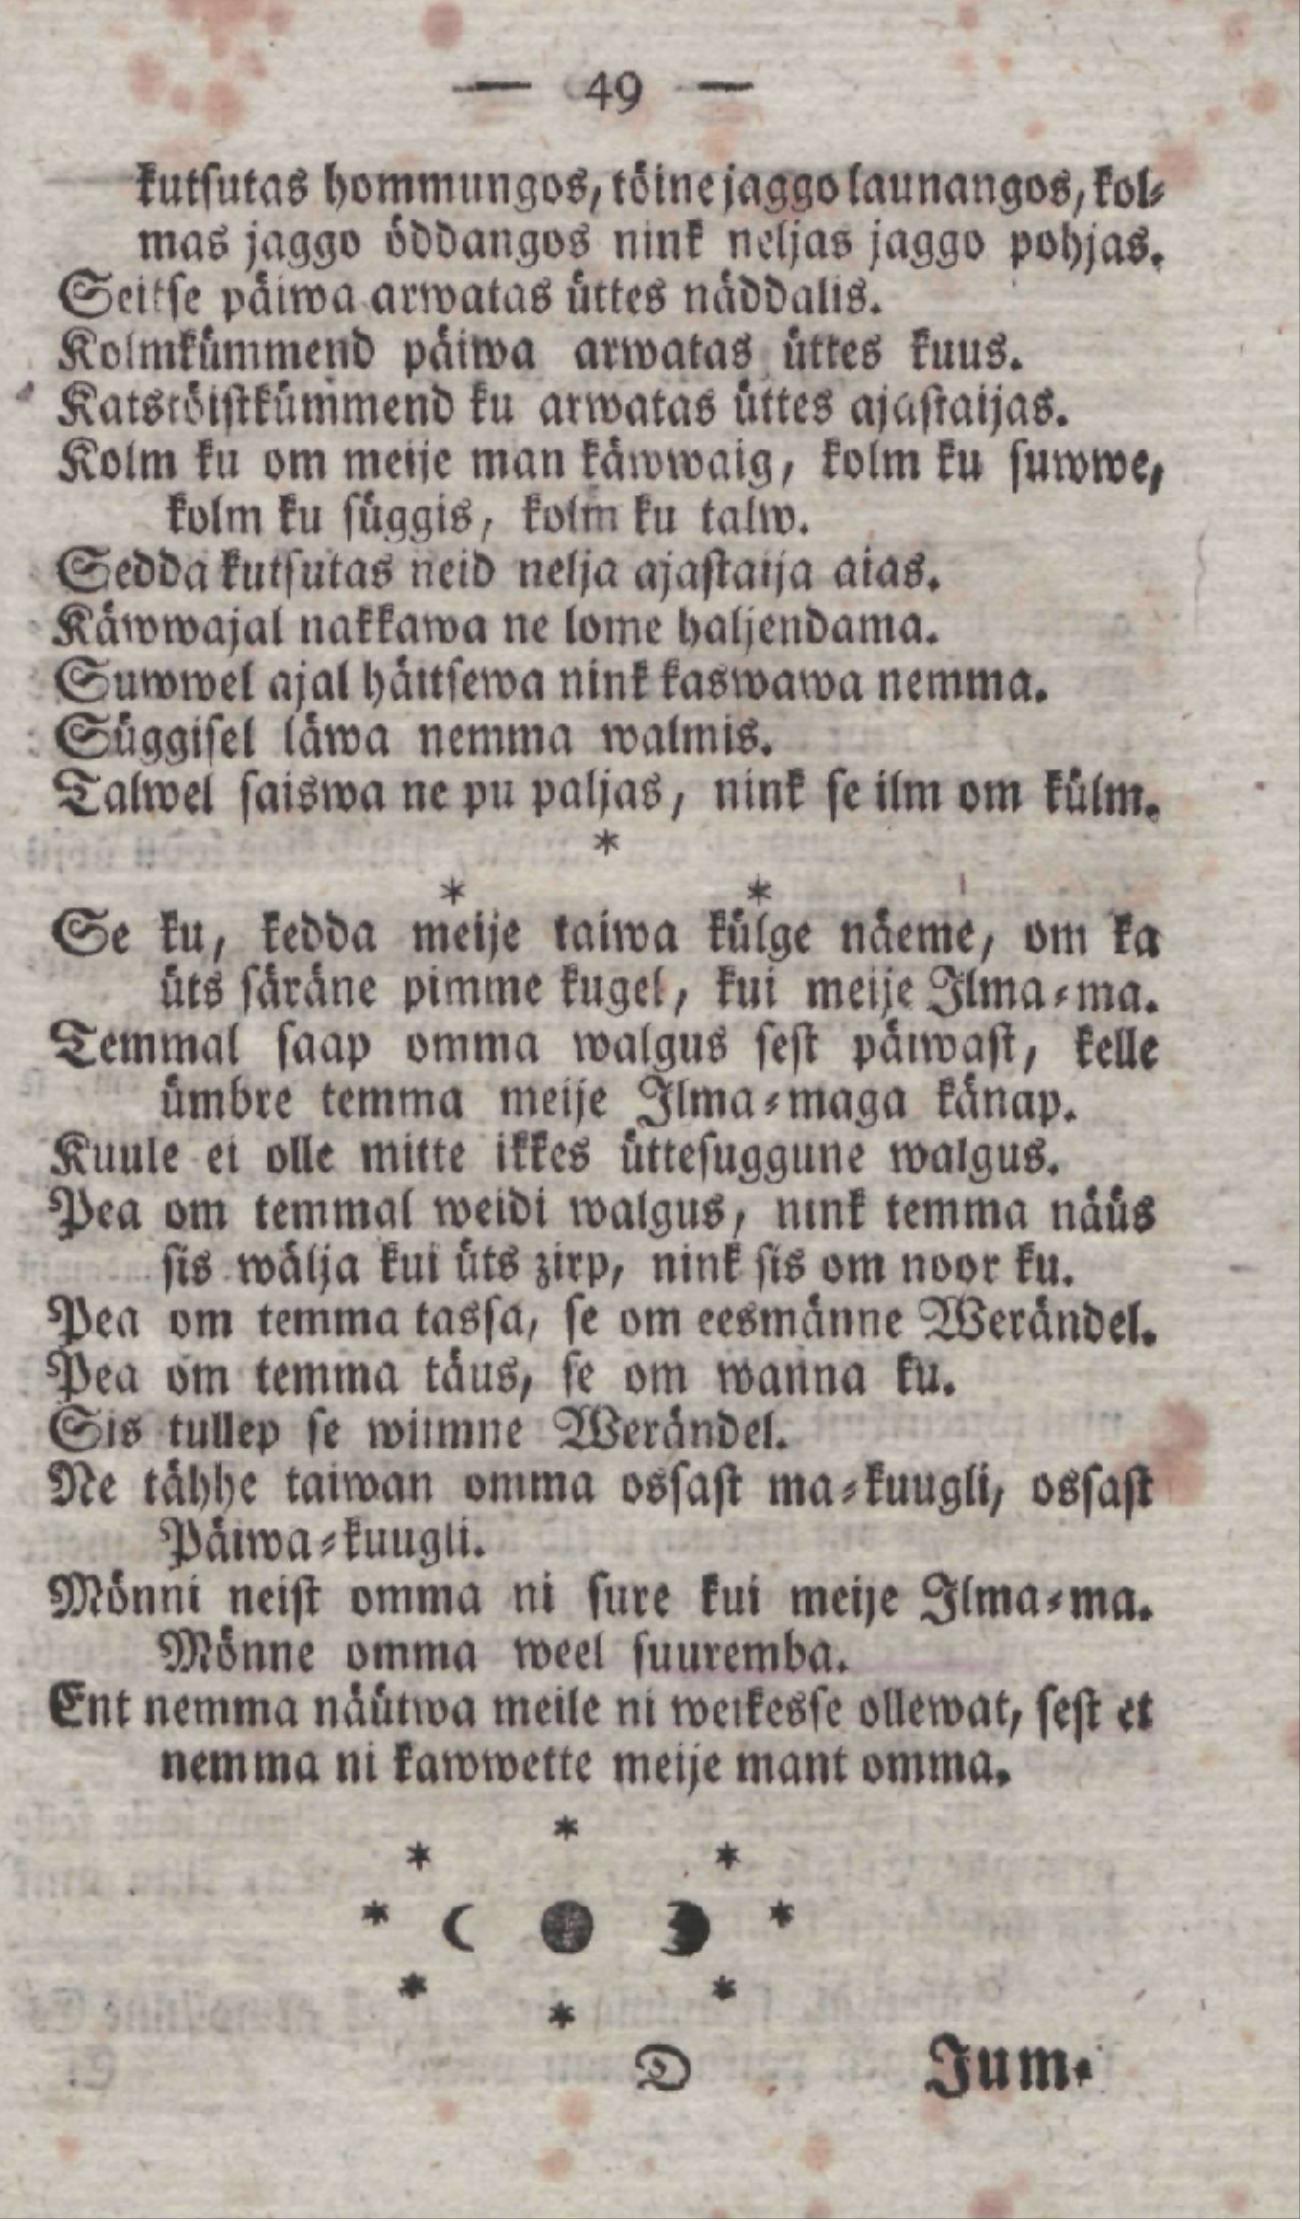 — 49 —
kutsutas hommungos, töine jaggo launangos, kol-
mas jaggo öddangos nink neljas jaggo pohjas.
Seitse päiwa arwatas üttes näddalis.
Kolmkümmend päiwa arwatas üttes kuus.
Katstöistkümmend ku arwatas üttes ajastaijas.
Kolm ku om meije man käwwaig, kolm ku suwwe,
kolm ku süggis, kolm ku talw.
Sedda kutsutas neid nelja ajastaija aias.
Käwwajal nakkawa ne lome haljendama.
Suwwel ajal häitsewa nink kaswawa nemma.
Süggisel läwa nemma walmis.
Talwel saiswa ne pu paljas, nink se ilm om külm.
*
* *
Se ku, kedda meije taiwa külge näeme, om ka
üts säräne pimme kugel, kui meije Ilma-ma.
Temmal saap omma walgus sest päiwast, kelle
ümbre temma meije Ilma-maga känap.
Kuule ei olle mitte ikkes üttesuggune walgus.
Pea om temmal weidi walgus, nink temma näüs
sis wälja kui üts zirp, nink sis om noor ku.
Pea om temma tassa, se om eesmänne Werändel.
Pea om temma täus, se om wanna ku.
Sis tullep se wiimne Werändel.
Ne tähhe taiwan omma ossast ma-kuugli, ossast
Päiwa-kuugli.
Mönni neist omma ni sure kui meije Ilma-ma.
Mönne omma weel suuremba.
Ent nemma näütwa meile ni weikesse ollewat, sest et
nemma ni kawwette meije mant omma.
D Jum-